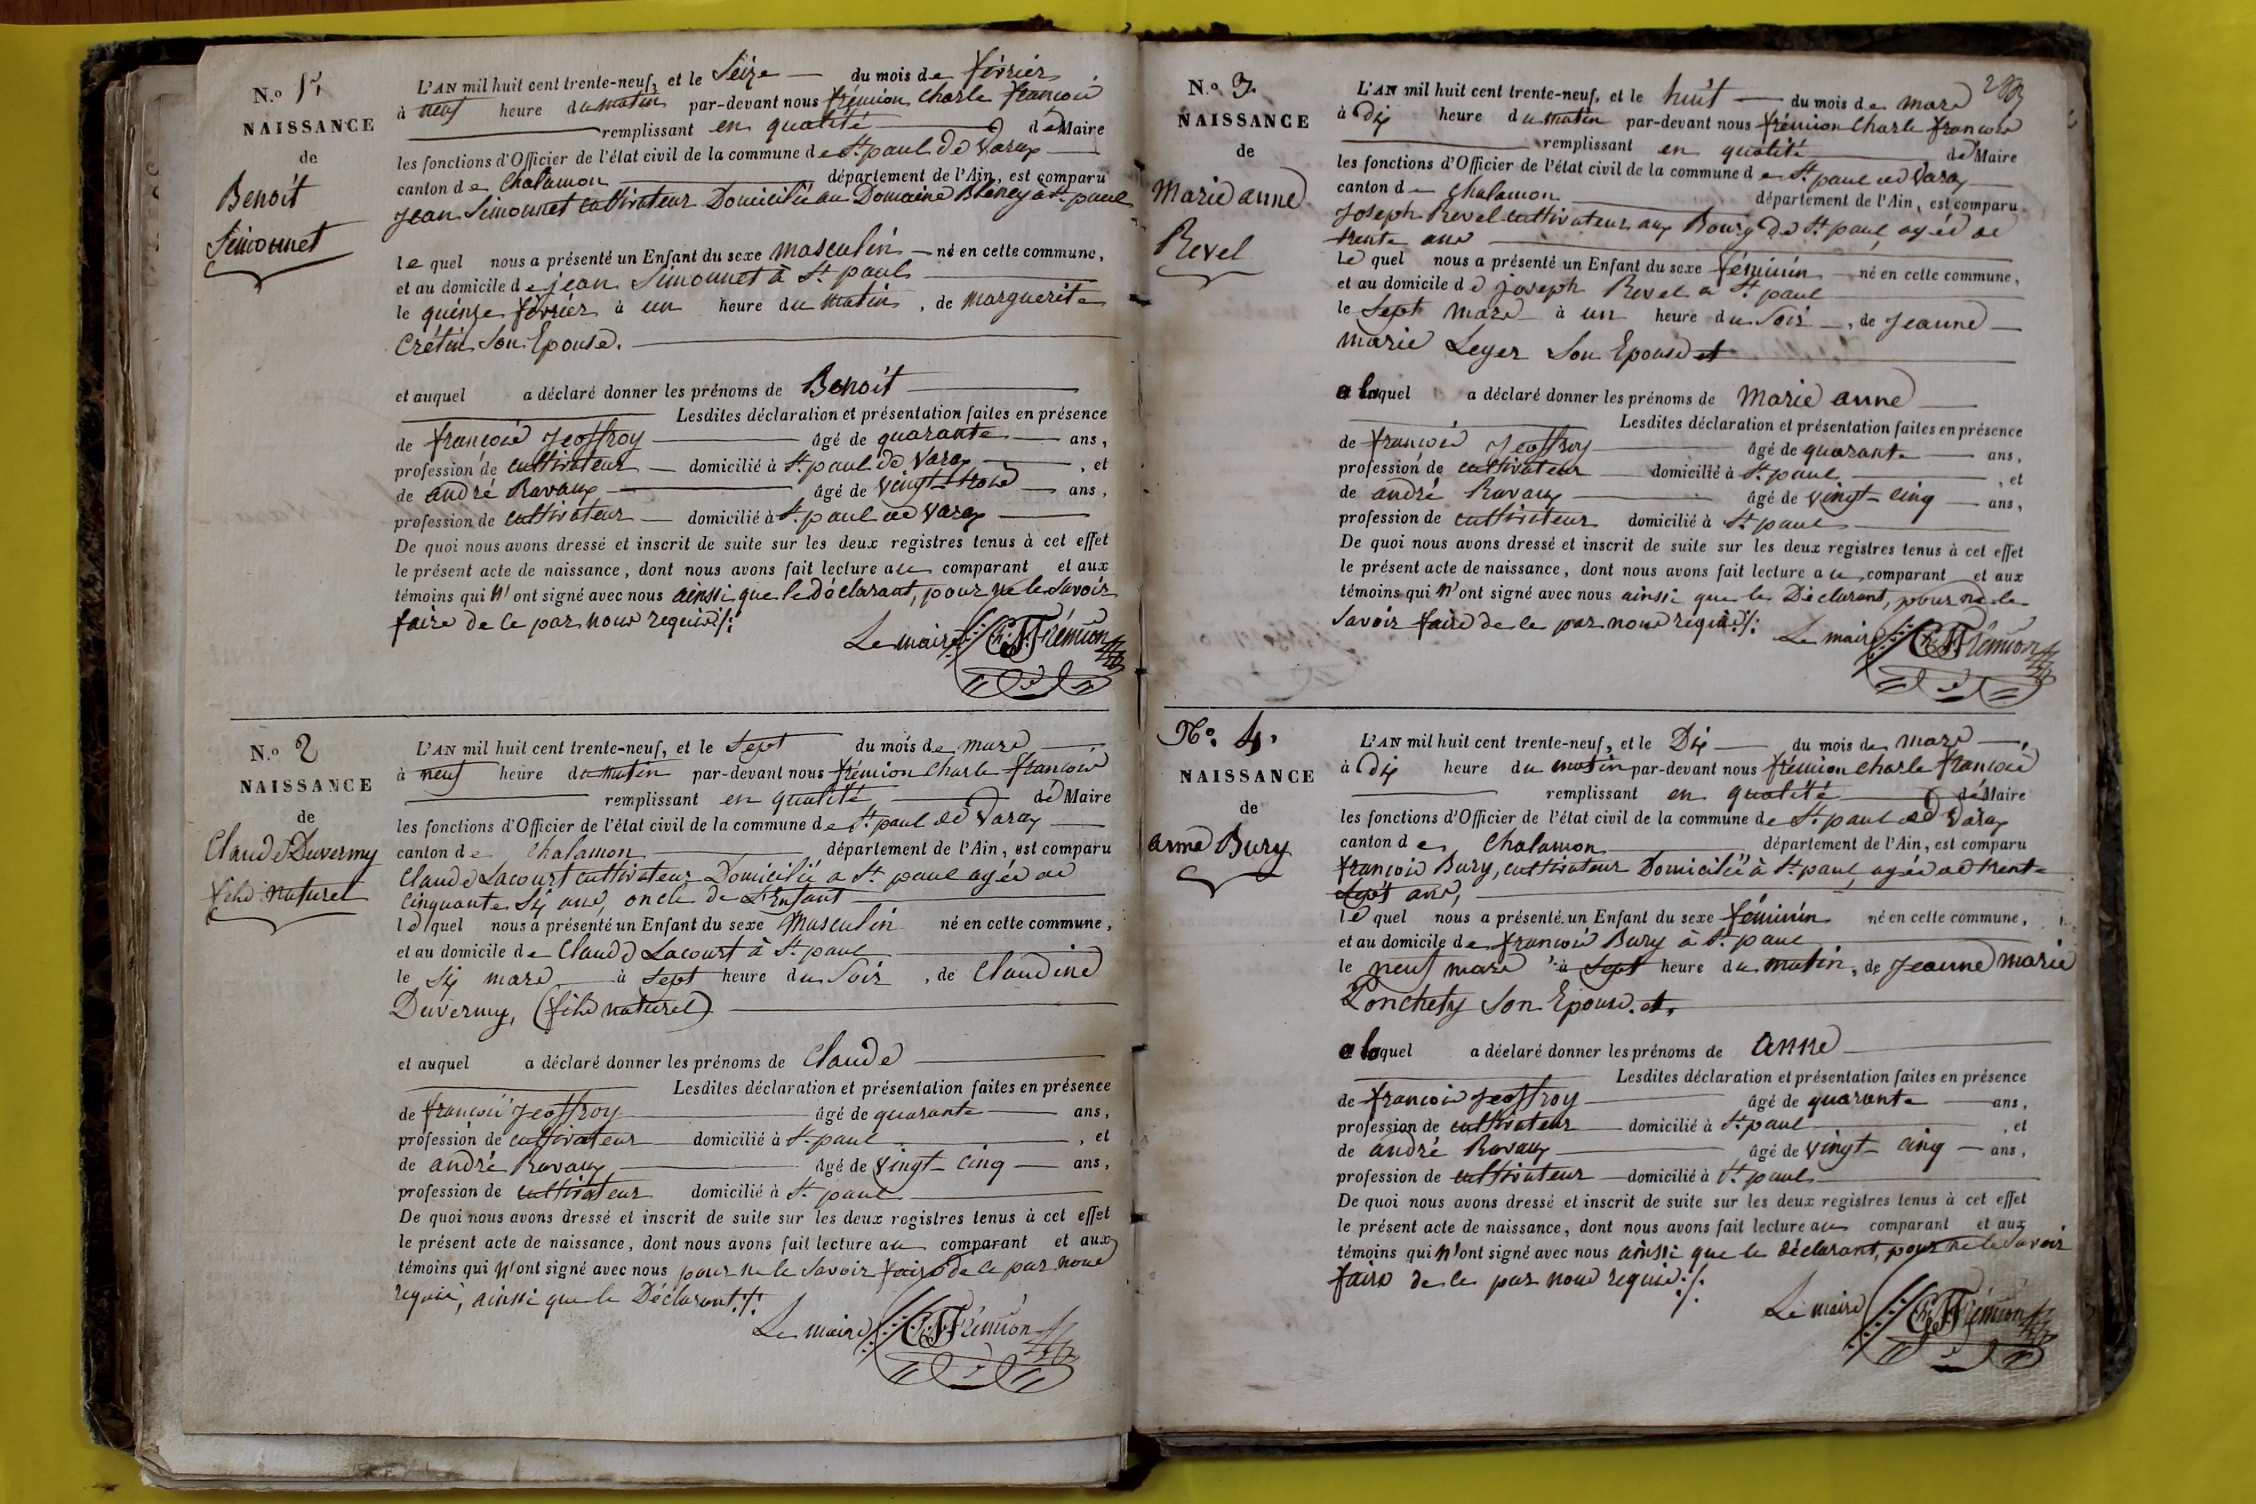 N.o 1er
NAISSANCE
de
Benoit
Simonnet
L'AN mil huit cent trente-neuf, et le Seize du mois de février
à neuf heure du matin par-devant nous frémion Charle françois
remplissant en qualité de Maire
les fonctions d'Officier de l'état civil de la commune de St. paul de Varax
canton de Chalamon département de l'Ain, est comparu
Jean Simonnet cultivateur Domicilié au Domaine Bleney à St. paul
lequel nous a présenté un Enfant du sexe masculin né en cette commune,
et au domicile de jean Simonnet à St. paul
le quinze février à un heure du matin, de marguerite
Crétin Son Epouse.
et auquel a déclaré donner les prénoms de Benoit
Lesdites déclaration et présentation faites en présence
de françois Jeoffroy âgé de quarante ans,
profession de cultivateur domicilié à St. paul de Varax, et
de andré Ravaux âgé de vingt trois ans,
profession de cultivateur domicilié à St. paul de Varax
De quoi nous avons dressé et inscrit de suite sur les deux registres tenus à cet effet
le présent acte de naissance, dont nous avons fait lecture au comparant et aux
témoins qui n'ont signé avec nous ainsi que le déclarant, pour ne le Savoir
faire de ce par nous requis ./.
Le maire Ch. F. Frémion
N.o 2
NAISSANCE
de
Claude Duvermy
fils naturel
L'AN mil huit cent trente-neuf, et le Sept du mois de mars
à neuf heure du matin par-devant nous frémion Charle françois
remplissant en qualité de Maire
les fonctions d'Officier de l'état civil de la commune de St. paul de Varax
canton de Chalamon département de l'Ain, est comparu
Claude Lacourt cultivateur Domicilié a St. paul agée de
cinquante Six ans, oncle de L'Enfant
lequel nous a présenté un Enfant du sexe Masculin né en cette commune,
et au domicile de Claude Lacourt à St. paul
le Six mars à Sept heure du Soir, de Claudine
Duvermy, (fils naturel)
et auquel a déclaré donner les prénoms de Claude
Lesdites déclaration et présentation faites en présence
de françois Jeoffroy âgé de quarante ans,
profession de cultivateur domicilié à St. paul, et
de andré Ravaux âgé de vingt cinq ans,
profession de cultivateur domicilié à St. paul
De quoi nous avons dressé et inscrit de suite sur les deux registres tenus à cet effet
le présent acte de naissance, dont nous avons fait lecture au comparant et aux
témoins qui n'ont signé avec nous pour ne le Savoir faire de ce par nous
requis, ainsi que le Déclarant ./.
Le maire Ch. F. Frémion
N.o 3.
NAISSANCE
de
Marie anne
Revel
L'AN mil huit cent trente-neuf, et le huit du mois de mars
à Dix heure du matin par-devant nous frémion Charle françois
remplissant en qualité de Maire
les fonctions d'Officier de l'état civil de la commune de St. paul de Varax
canton de Chalamon département de l'Ain, est comparu
Joseph Revel cultivateur aux Bourg de St. paul, agée de
trente ans
lequel nous a présenté un Enfant du sexe féminin né en cette commune,
et au domicile de joseph Revel a St. paul
le Sept mars à un heure du Soir, de Jeanne
marie Leyer Son Epouse et
a laquel a déclaré donner les prénoms de Marie anne
Lesdites déclaration et présentation faites en présence
de françois Jeoffroy âgé de quarante ans,
profession de cultivateur domicilié à St. paul, et
de andré Ravaux âgé de vingt cinq ans,
profession de cultivateur domicilié à St. paul
De quoi nous avons dressé et inscrit de suite sur les deux registres tenus à cet effet
le présent acte de naissance, dont nous avons fait lecture au comparant et aux
témoins qui n'ont signé avec nous ainsi que le Déclarant, pour ne le
Savoir faire de ce par nous requis ./.
Le maire Ch. F. Frémion
No. 4.
NAISSANCE
de
anne Bury
L'AN mil huit cent trente-neuf, et le Dix du mois de mars,
à Dix heure du matin par-devant nous frémion Charle françois
remplissant en qualité de Maire
les fonctions d'Officier de l'état civil de la commune de St. paul de Varax
canton de Chalamon département de l'Ain, est comparu
françois Bury, cultivateur Domicilié à St. paul, agée de trente
Sept ans,
lequel nous a présenté un Enfant du sexe féminin né en cette commune,
et au domicile de françois Bury à St. paul
le neuf mars à Sept heure du matin, de Jeanne marie
Ponchety Son Epouse. et,
a laquel a déclaré donner les prénoms de anne
Lesdites déclaration et présentation faites en présence
de françois Jeoffroy âgé de quarante ans,
profession de cultivateur domicilié à St. paul, et
de andré Ravaux âgé de vingt cinq ans,
profession de cultivateur domicilié à St. paul
De quoi nous avons dressé et inscrit de suite sur les deux registres tenus à cet effet
le présent acte de naissance, dont nous avons fait lecture au comparant et aux
témoins qui n'ont signé avec nous ainsi que le déclarant, pour ne le Savoir
faire de ce par nous requis ./.
Le maire Ch. F. Frémion